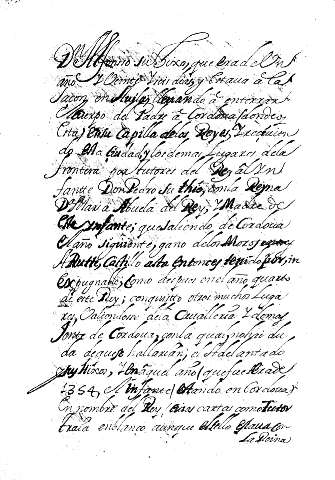 Dn Alfonso su hixo, que era de Un
año, Y Veinte Y seis dias, y estava â la
Sazon, en Avila, llevando â enterrar
el cuerpo de Padre â Cordova (donde
esta) en la Capilla de los Reyes, Y recivien
do esta Ciudad, y los demas Lugares de la
frontera por tutores del Rey al Yn
fante Don Pedro su thio, con la Reyna
Dª Maria Abuela del Rey, Y Madre de
este Ynfante; que saliendo de Cordova
el año siguiente, gano de los Moros
A Rutte, Castillo asta entonces tenido por, in
expugnable; Como despues en el año quarto
de este Rey; conquisto otros muchos Luga
res, Valiendose de la Cavalleria Y demas
Jente de Cordova, con la qual no ai du
da de que se hallarian, el Adelantado
Y sus Hixos, Y en aquel año (que fue el de
1354, el Ynfante (estando en Cordova)
En nombre del Rey, Cuias cartas como tutor
traia en blanco, aunque el sello estava con
La Reina